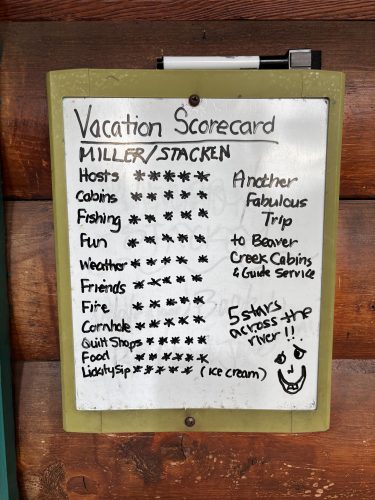 Vacation Scorecard
MILLER/STACKEN
Hosts *****
Cabins *****
Fishing *****
Fun *****
Weather *****
Friends *****
Fire *****
Cornhole *****
Quilt Shops *****
Food *****
LickitySip ***** (ice cream)
Another
Fabulous
Trip
to Beaver
Creek Cabins
& Guide Service
5 stars
across the
river!!